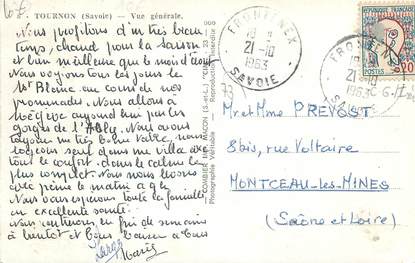 TOURNON (Savoie) — Vue générale.
Nous profitons d'un très beau
temps, chaud pour la saison
et bien meilleur que le mois d'août
Nous voyons tous les jours le
Mt Blanc au cours de nos
promenades. Nous allons à
aujourd'hui par les
gorges de l'Arly. Nous avons
très bonne
logeons seuls dans une villa avec
tout le confort. dans le calme le
plus complet. Nous nous
avec peine le matin à 9h.
Nous vous espérons toute la famille
en excellente santé.
Nous rentrerons en fin de semaine
à bientôt et bons baisers à tous
COMBIER IMP. MACON (S.-et-L.) "CIM"
Photographie Véritable - Reproduction Interdite
FRONTENEX
21-10
1963
SAVOIE
FRONTENEX
21-10
1963
POSTES
0,20
73
Mr et Mme PREVOST
8bis, rue Voltaire
MONTCEAU-les-MINES
(Saône et Loire)